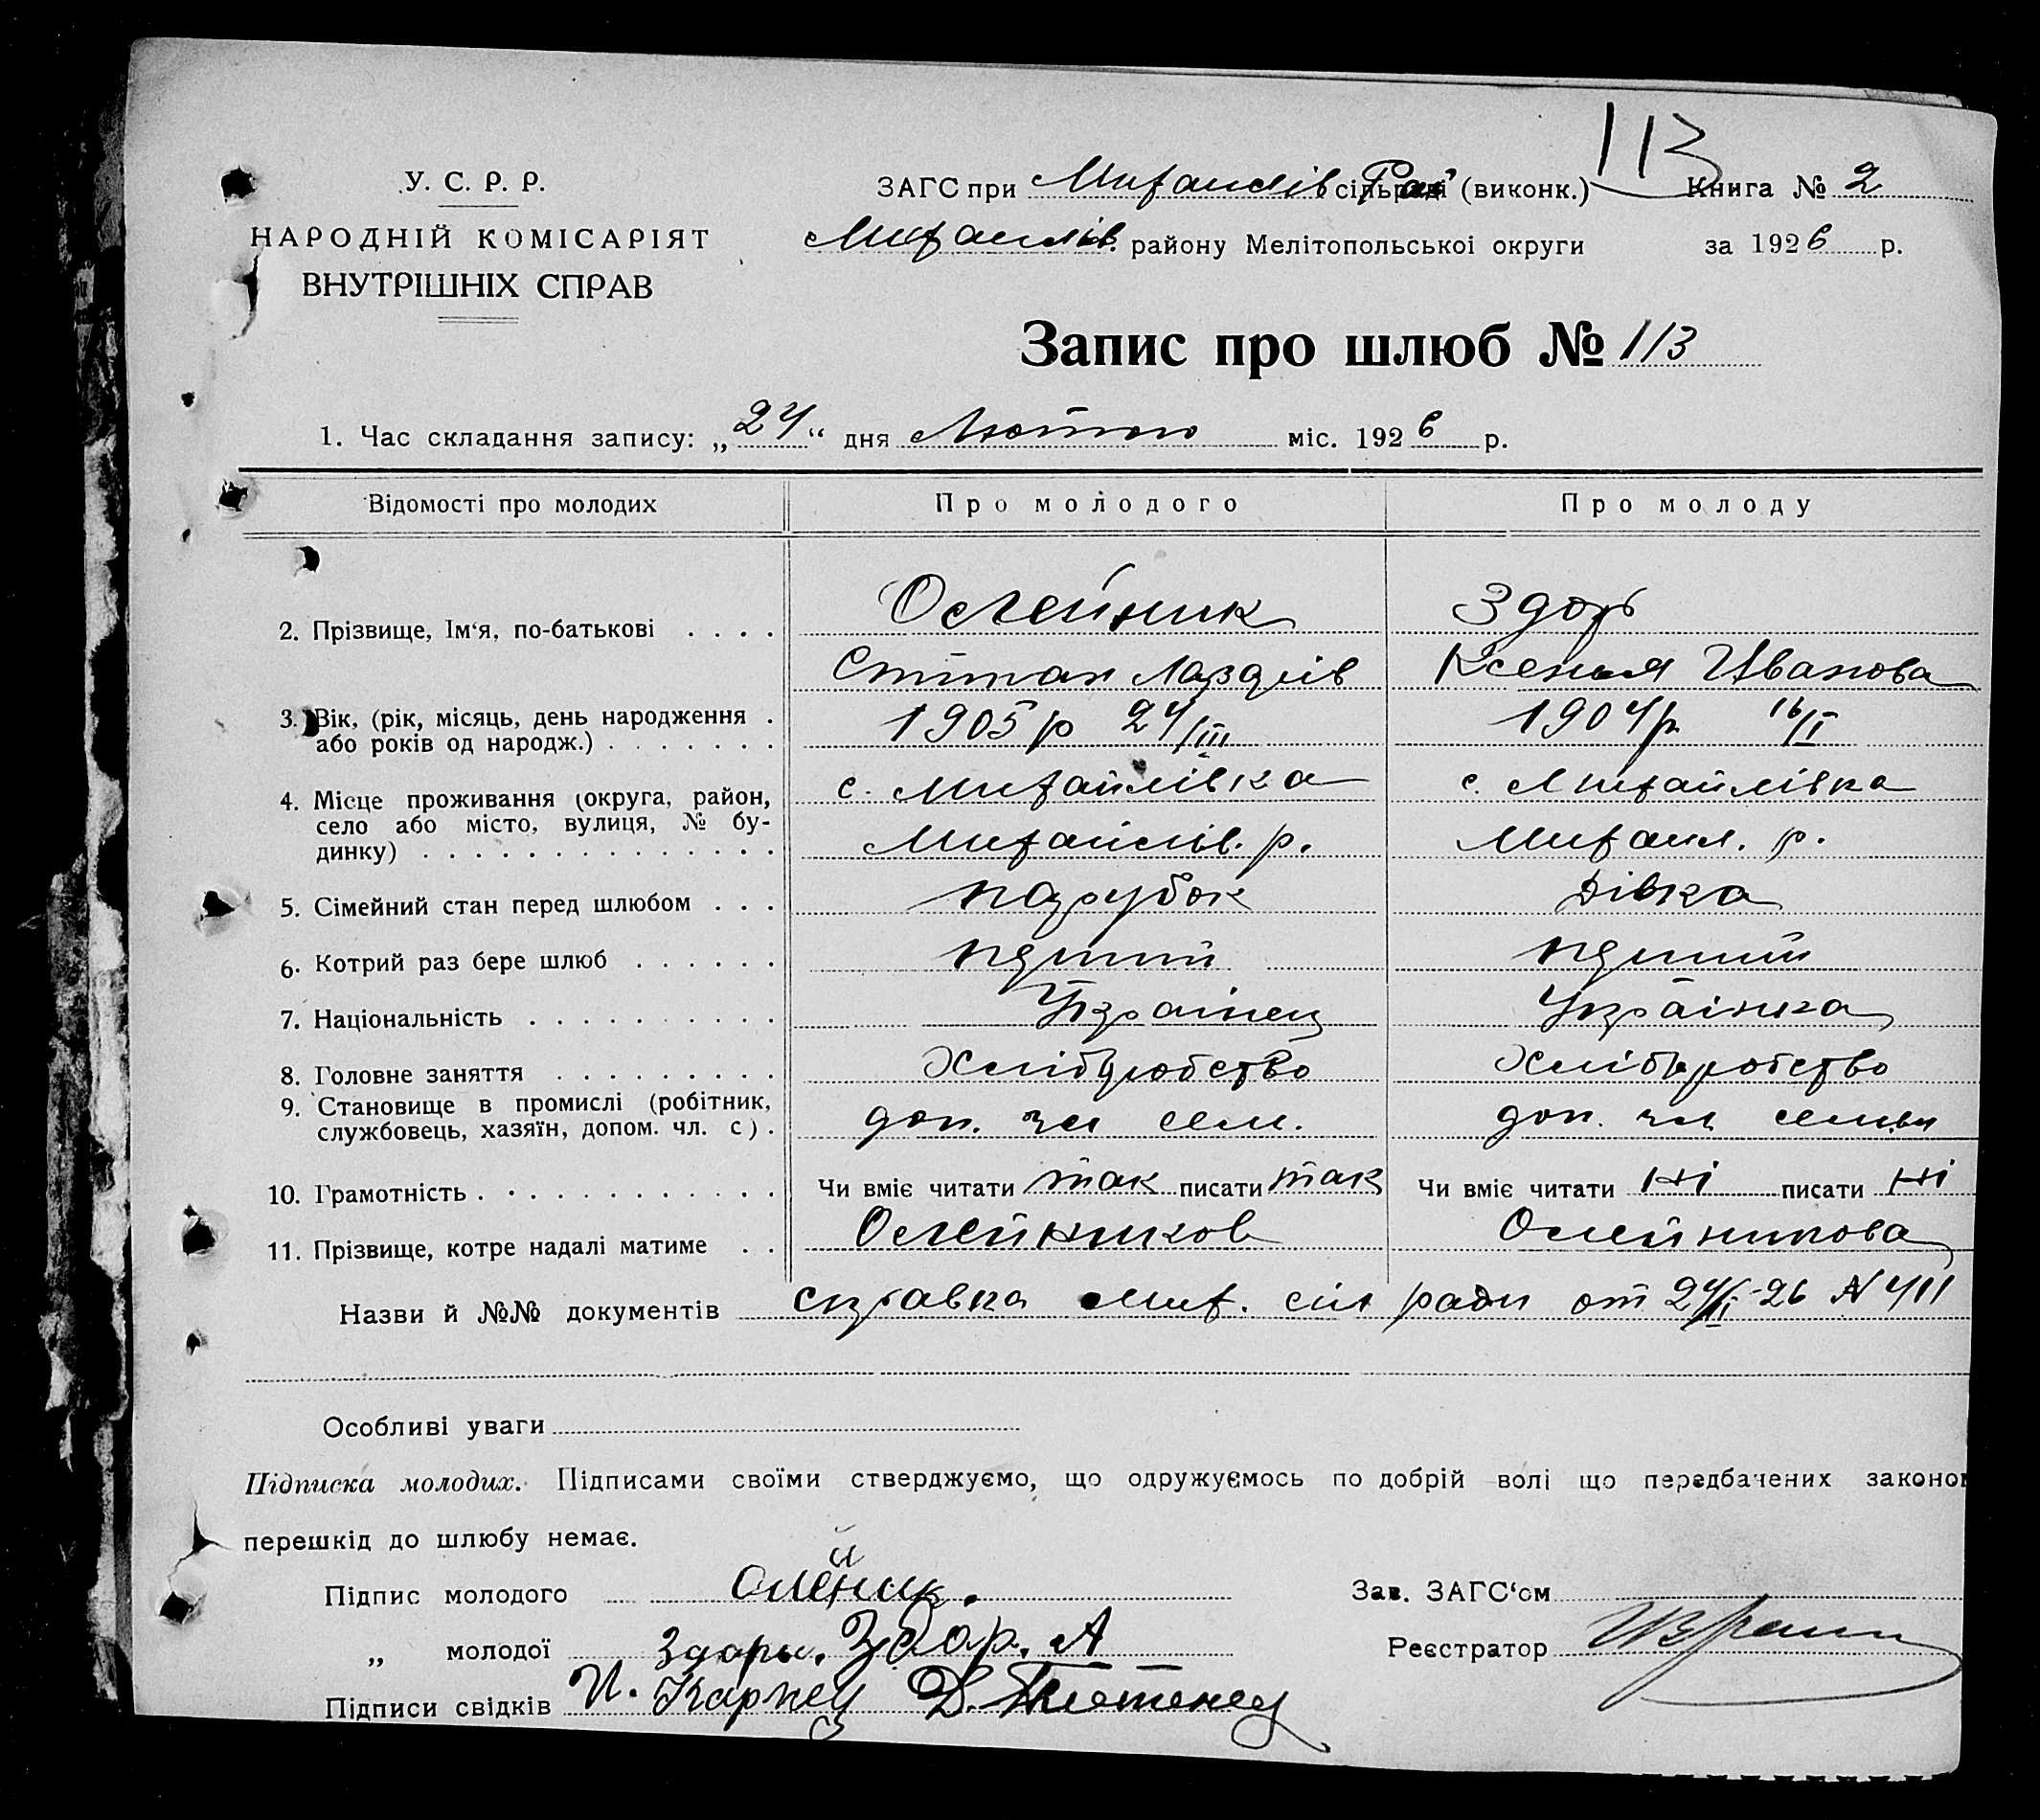 113
У. С. Р. Р.
НАРОДНІЙ КОМІСАРІЯТ
ВНУТРІШНІХ СПРАВ
ЗАГС при Михайлів сільраді (виконк.) Книга № 2
Михайлів. району Мелітопольськоі округи за 1926 р.
Запис про шлюб № 113
1. Час складання запису: „24“ дня Лютого міс. 1926 р.
Відомості про молодих Про молодого Про молоду
2. Прізвище, Ім‘я, по-батькові . . . . Олейник Здорь
Степан Ксенья Иванова
3. Вік, (рік, місяць, день народження . 1905 р 24/III 1904 р. 16/I
або років од народж.) . . . . . . .
4. Місце проживання (округа, район, с. Михайлівка с. Михайлівка
село або місто, вулиця, № бу-
динку) . . . . . . . . . . . . . . Михайлів. р. Михайл. р.
5. Сімейний стан перед шлюбом . . . парубок дівка
6. Котрий раз бере шлюб . . . . . . перший перший
7. Національність . . . . . . . . . . Українец Українка
8. Головне заняття . . . . . . . . . Хліборобство Хліборобство
9. Становище в промислі (робітник,
службовець, хазяїн, допом. чл. с). доп. чл сем. доп. чл семьи
10. Грамотність . . . . . . . . . . . . Чи вміє читати так писати так Чи вміє читати ні писати ні
11. Прізвище, котре надалі матиме . . Олейников Олейникова
Назви й №№ документів справка Мих. сіл ради от 24/II-26 N 411
Особливі уваги
Підписка молодих. Підписами своїми стверджуємо, що одружуємось по добрій волі що передбачених законом
перешкід до шлюбу немає.
Підпис молодого Олейник. Зав. ЗАГС‘ом
„ молодої Здорь. Здор. А Реєстратор
Підписи свідків И. Карпец Д.